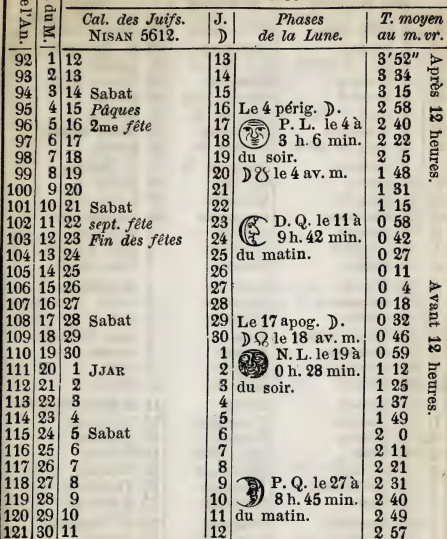 de l'An. du M. Cal. des Juifs. NISAN 5612. J. ☽ Phases de la Lune. T. moyen au m. vr.
92 1 12 13 3'52" Après 12 heures.
93 2 13 14 3 34
94 3 14 Sabat 15 3 15
95 4 15 Pâques 16 Le 4 périg. ☽. 2 58
96 5 16 2me fête 17 P. L. le 4 à 2 40
97 6 17 18 3 h. 6 min. 2 22
98 7 18 19 du soir. 2 5
99 8 19 20 ☽☋ le 4 av. m. 1 48
100 9 20 21 1 31
101 10 21 Sabat 22 1 15
102 11 22 sept. fête 23 D. Q. le 11 à 0 58
103 12 23 Fin des fêtes 24 9 h. 42 min. 0 42
104 13 24 25 du matin. 0 27
105 14 25 26 0 11
106 15 26 27 0 4 Avant 12 heures.
107 16 27 28 0 18
108 17 28 Sabat 29 Le 17 apog. ☽. 0 32
109 18 29 30 ☽☊ le 18 av. m. 0 46
110 19 30 1 N. L. le 19 à 0 59
111 20 1 JJAR 2 0 h. 28 min. 1 12
112 21 2 3 du soir. 1 25
113 22 3 4 1 37
114 23 4 5 1 49
115 24 5 Sabat 6 2 0
116 25 6 7 2 11
117 26 7 8 2 21
118 27 8 9 P. Q. le 27 à 2 31
119 28 9 10 8 h. 45 min. 2 40
120 29 10 11 du matin. 2 49
121 30 11 12 2 57